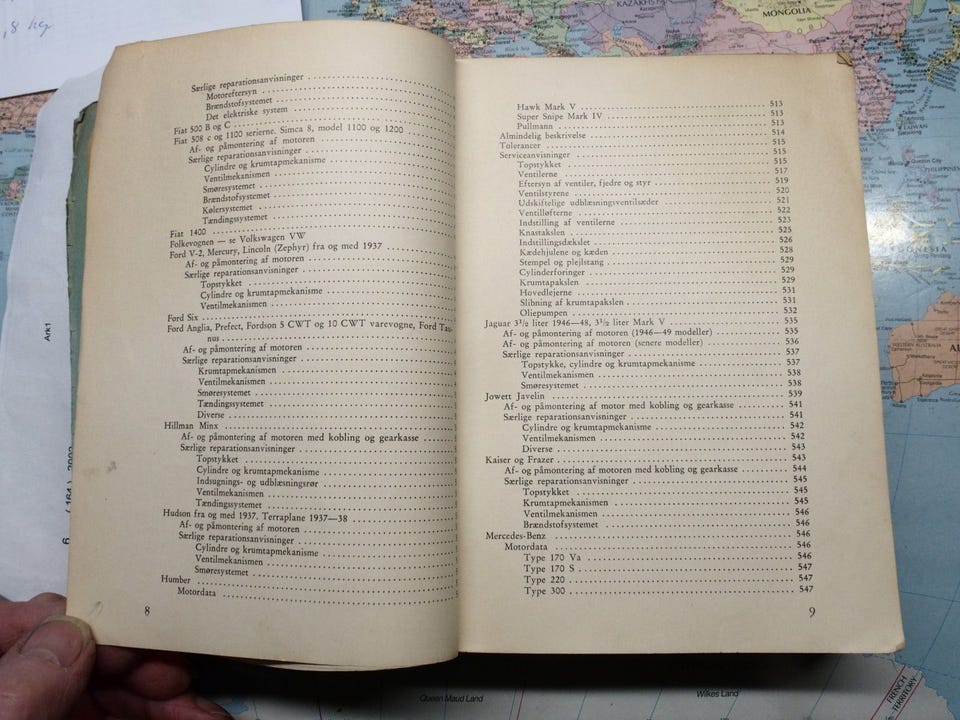 ,8 kg
Særlige reparationsanvisninger
Motoreftersyn
Brændstofsystemet
Det elektriske system
Fiat 500 B og C
Fiat 508 c og 1100 serierne. Simca 8, model 1100 og 1200
Af- og påmontering af motoren
Særlige reparationsanvisninger
Cylindre og krumtapmekanisme
Ventilmekanismen
Smøresystemet
Brændstofsystemet
Kølersystemet
Tændingssystemet
Fiat 1400
Folkevognen — se Volkswagen VW
Ford V-2, Mercury, Lincoln (Zephyr) fra og med 1937
Af- og påmontering af motoren
Særlige reparationsanvisninger
Topstykket
Cylindre og krumtapmekanisme
Ventilmekanismen
Ford Six
Ford Anglia, Prefect, Fordson 5 CWT og 10 CWT varevogne, Ford Tau-
nus
Af- og påmontering af motoren
Særlige reparationsanvisninger
Krumtapmekanismen
Ventilmekanismen
Smøresystemet
Tændingssystemet
Diverse
Hillman Minx
Af- og påmontering af motoren med kobling og gearkasse
Særlige reparationsanvisninger
Topstykket
Cylindre og krumtapmekanisme
Indsugnings- og udblæsningsrør
Ventilmekanismen
Tændingssystemet
Hudson fra og med 1937, Terraplane 1937—38
Af- og påmontering af motoren
Særlige reparationsanvisninger
Cylindre og krumtapmekanisme
Ventilmekanismen
Smøresystemet
Humber
Motordata
8
Hawk Mark V 513
Super Snipe Mark IV 513
Pullmann 513
Almindelig beskrivelse 514
Tolerancer 515
Serviceanvisninger 515
Topstykket 515
Ventilerne 517
Eftersyn af ventiler, fjedre og styr 519
Ventilstyrene 520
Udskiftelige udblæsningsventilsæder 521
Ventilløfterne 522
Indstilling af ventilerne 523
Knastakslen 525
Indstillingsdækslet 526
Kædehjulene og kæden 528
Stempel og plejlstang 529
Cylinderforinger 529
Krumtapakslen 529
Hovedlejerne 531
Slibning af krumtapakslen 531
Oliepumpen 532
Jaguar 3½ liter 1946—48, 3½ liter Mark V 535
Af- og påmontering af motoren (1946—49 modeller) 535
Af- og påmontering af motoren (senere modeller) 536
Særlige reparationsanvisninger 537
Topstykke, cylindre og krumtapmekanisme 537
Ventilmekanismen 538
Smøresystemet 538
Jowett Javelin 539
Af- og påmontering af motor med kobling og gearkasse 541
Særlige reparationsanvisninger 541
Cylindre og krumtapmekanisme 542
Ventilmekanismen 542
Diverse 543
Kaiser og Frazer 543
Af- og påmontering af motoren med kobling og gearkasse 544
Særlige reparationsanvisninger 545
Topstykket 545
Krumtapmekanismen 545
Ventilmekanismen 546
Brændstofsystemet 546
Mercedes-Benz 546
Motordata 546
Type 170 Va 546
Type 170 S 547
Type 220 547
Type 300 547
9
Ark1
KAZAKHSTAN
MONGOLIA
Black Sea
TAIWAN
PHILIPPINES
INDONESIA
WESTERN AUSTRALIA
Queen Maud Land
Wilkes Land
FRENCH
TERRITORY